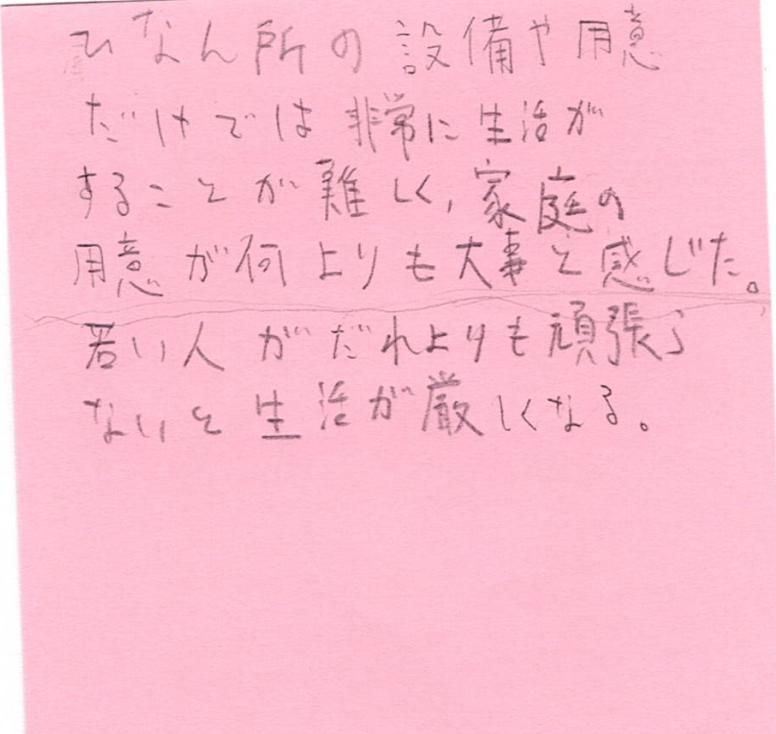 ひなん所の設備や用意
だけでは非常に生活が
することが難しく,家庭の
用意が何よりも大事と感じた。
若い人がだれよりも頑張ら
ないと生活が厳しくなる。